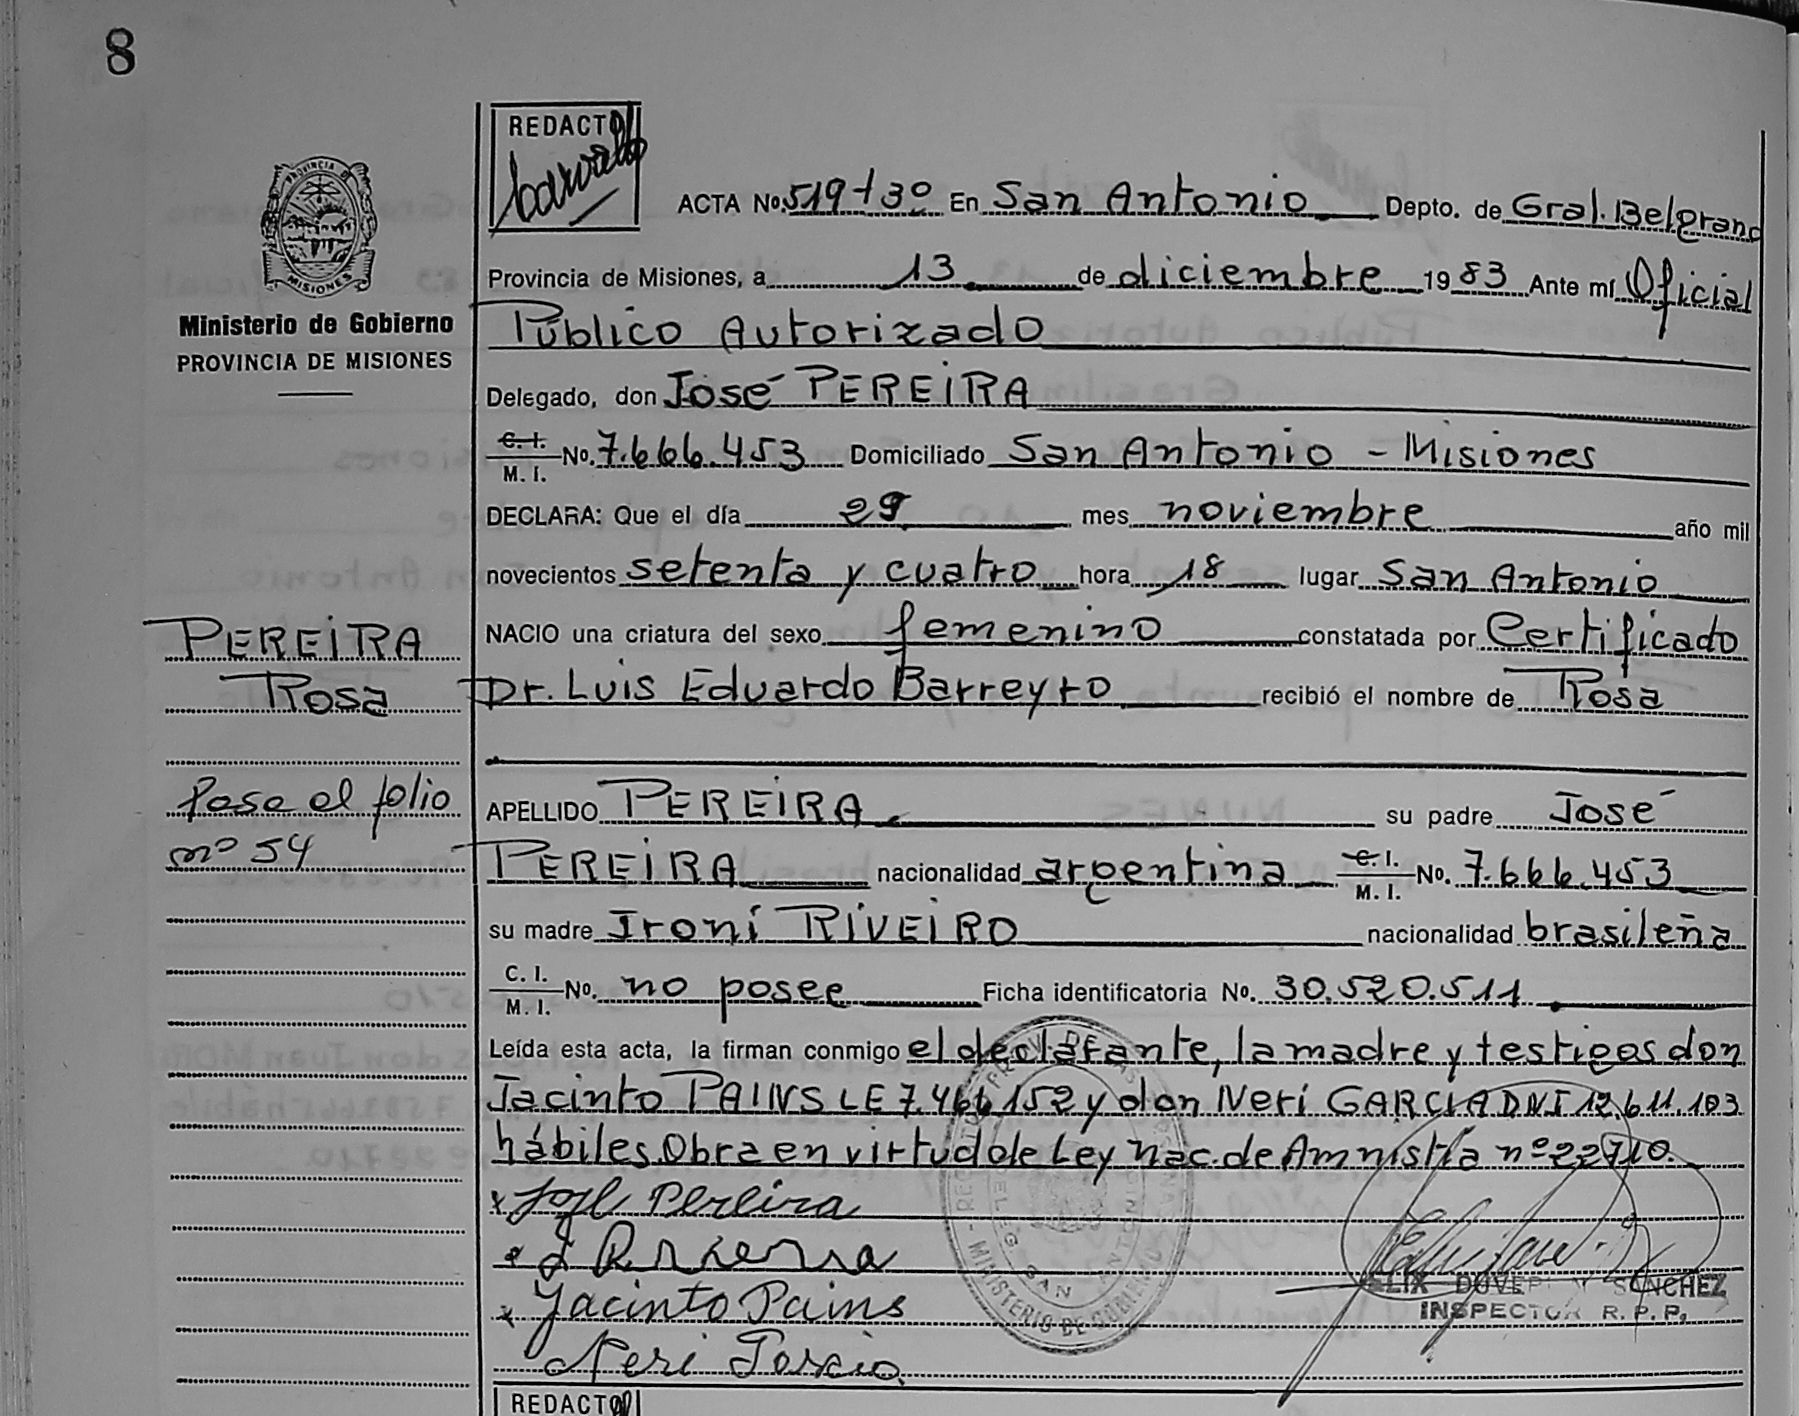 8
REDACTO
ACTA No. 519 t 3º En San Antonio Depto. de Gral. Belgrano
PROVINCIA DE MISIONES
Provincia de Misiones, a 13 de diciembre 1983 Ante mí Oficial
Ministerio de Gobierno
PROVINCIA DE MISIONES
Público Autorizado
Delegado, don José PEREIRA
C. I. / M. I. No. 7.666.453 Domiciliado San Antonio - Misiones
DECLARA: Que el día 29 mes noviembre año mil
novecientos setenta y cuatro hora 18 lugar San Antonio
PEREIRA
Rosa
NACIO una criatura del sexo femenino constatada por Certificado
Dr. Luis Eduardo Barreyro recibió el nombre de Rosa
Pase el folio
nº 54
APELLIDO PEREIRA su padre José
PEREIRA nacionalidad argentina C. I. / M. I. No. 7.666.453
su madre Ironí RIVEIRO nacionalidad brasileña
C. I. / M. I. No. no posee Ficha identificatoria No. 30.520.511
Leída esta acta, la firman conmigo el declarante, la madre y testigos don
Jacinto PAINS LE 7.466.152 y don Neri GARCIA DNI 12.611.103
hábiles. Obra en virtud de Ley Nac. de Amnistía nº 22710.
x José Pereira
x Jacinto Pains
Neri
MINISTERIO DE GOBIERNO
DELEG. SAN ANTONIO
FELIX SANCHEZ
INSPECTOR R. P. P.
REDACTO